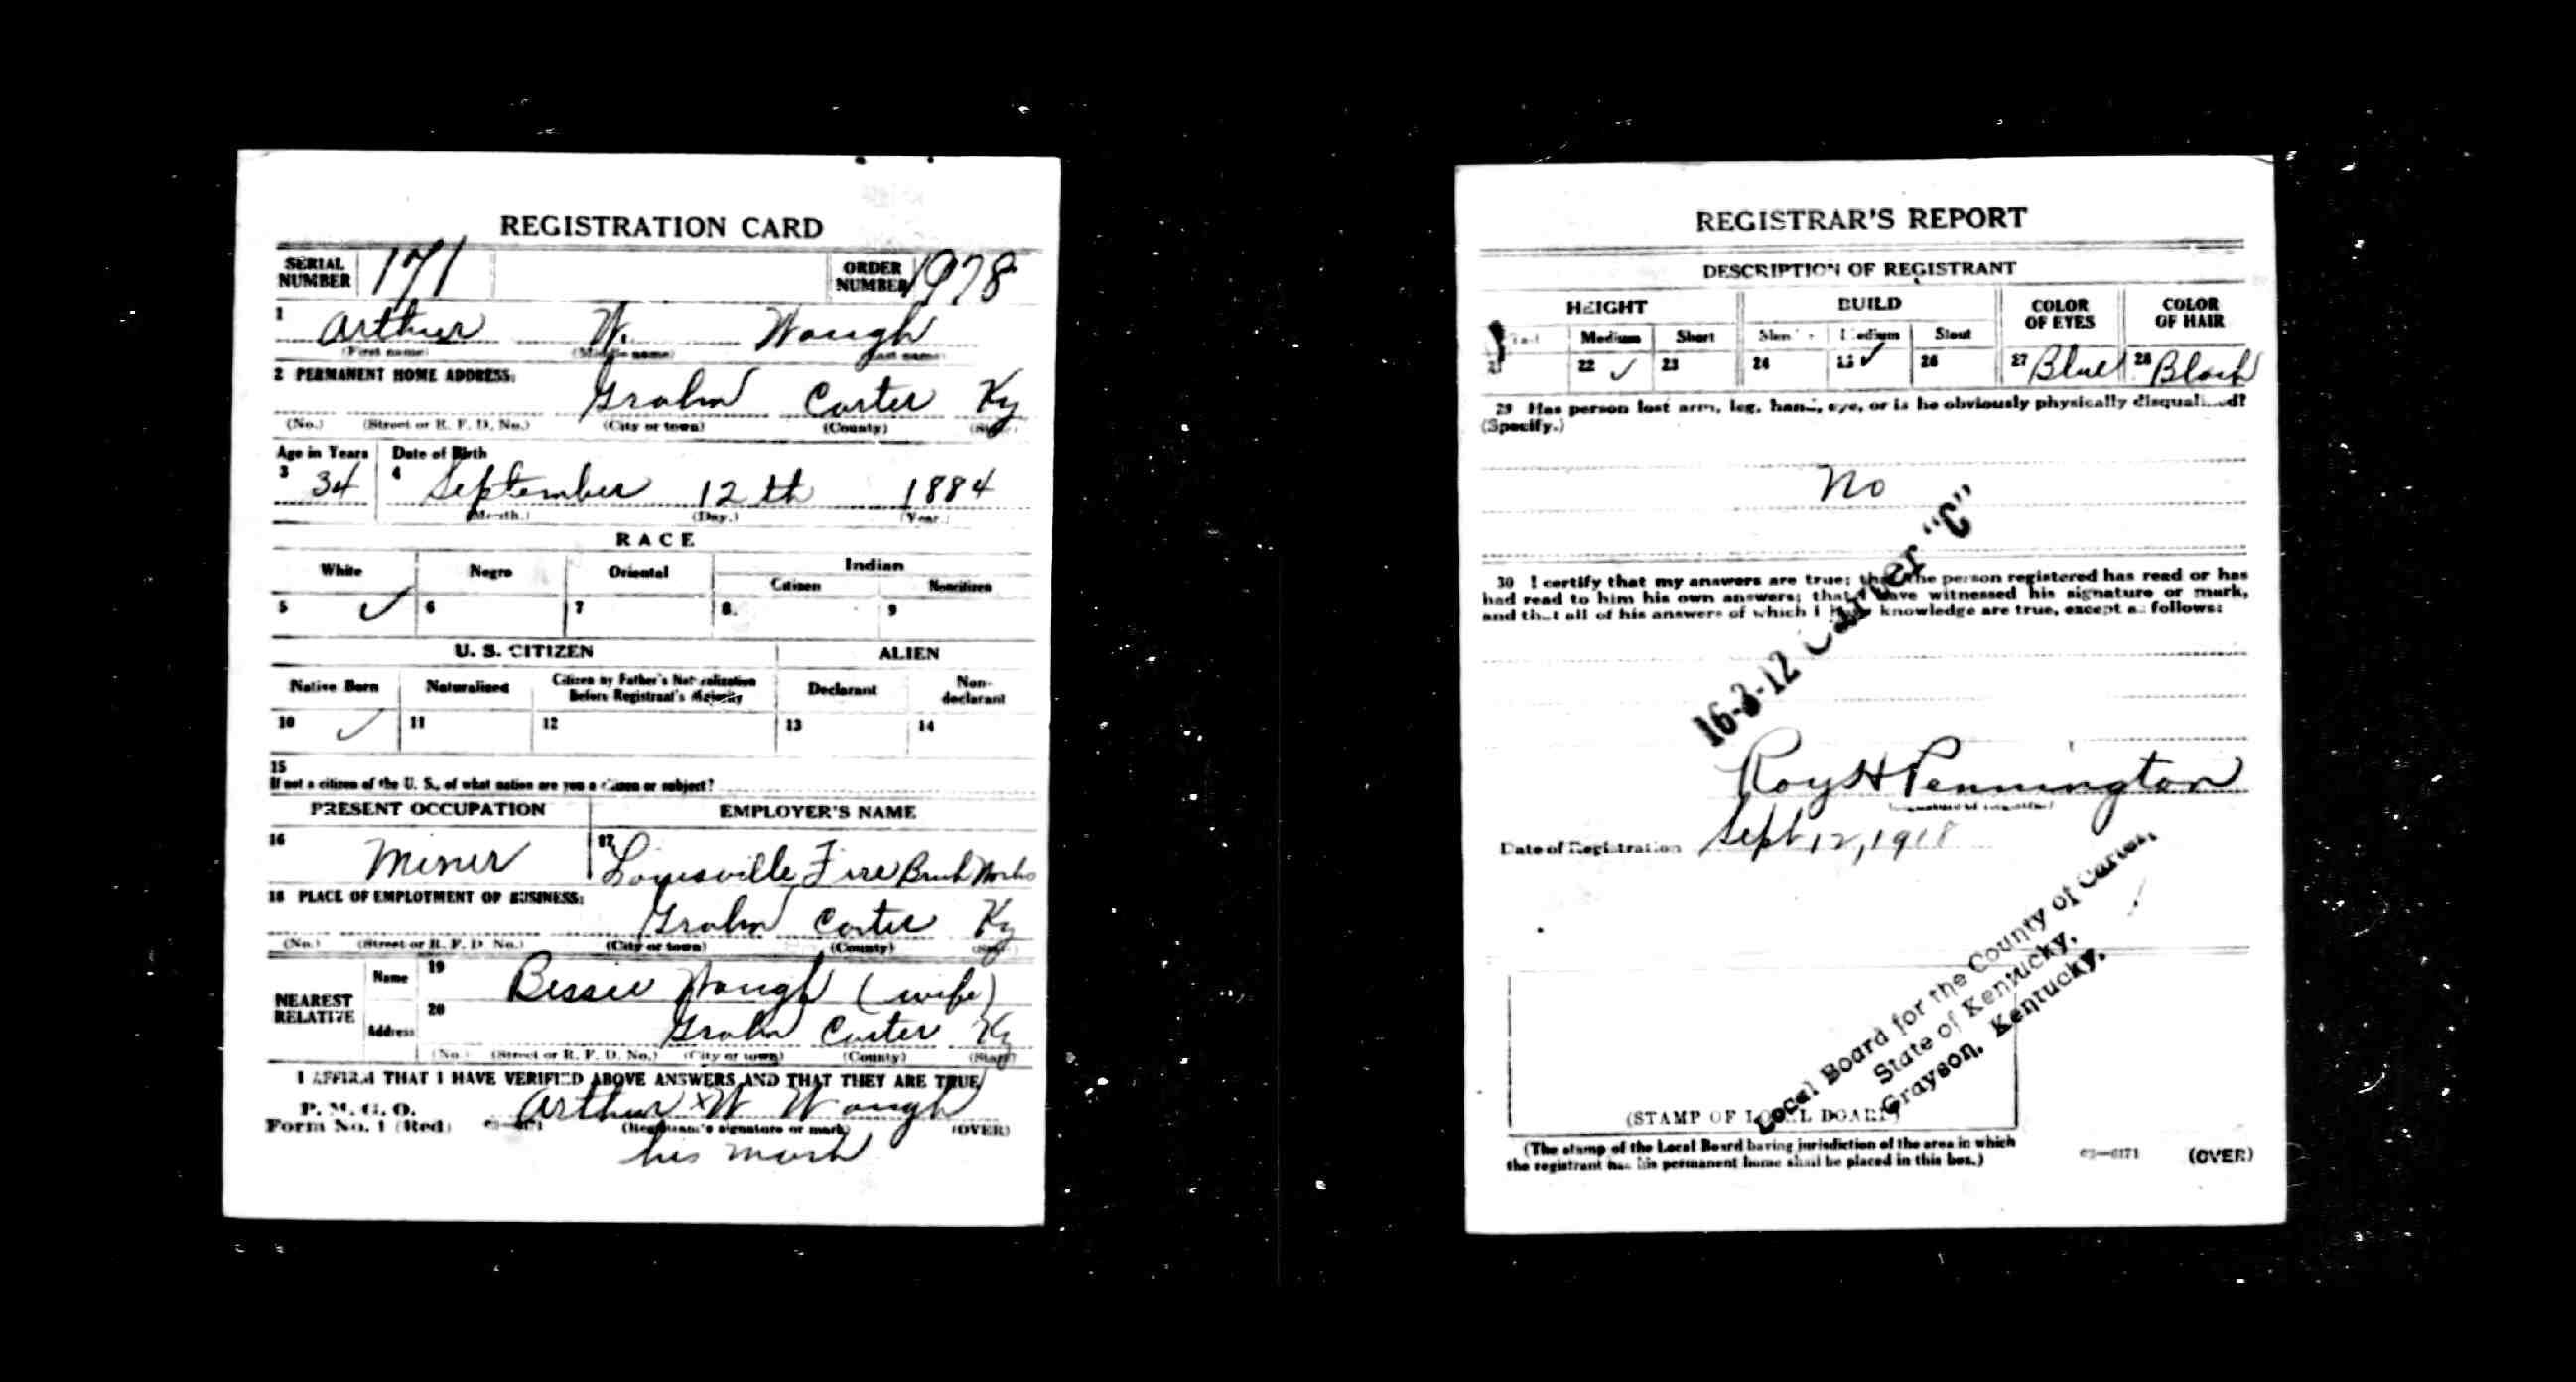 REGISTRATION CARD
SERIAL NUMBER 171 ORDER NUMBER 1978
1 Arthur W. Waugh
(First name) (Middle name) (Last name)
2 PERMANENT HOME ADDRESS:
Grahn Carter Ky
(No.) (Street or R. F. D. No.) (City or town) (County) (State)
Age in Years Date of Birth
3 34 4 September 12th 1884
(Month.) (Day.) (Year.)
RACE
White Negro Oriental Indian
Citizen Noncitizen
5 ✓ 6 7 8 9
U. S. CITIZEN ALIEN
Native Born Naturalized Citizen by Father's Naturalization Before Registrant's Majority Declarant Non-declarant
10 ✓ 11 12 13 14
15
If not a citizen of the U. S., of what nation are you a citizen or subject?
PRESENT OCCUPATION EMPLOYER'S NAME
16 Miner 17 Louisville Fire Brick Works
18 PLACE OF EMPLOYMENT OR BUSINESS:
Grahn Carter Ky
(No.) (Street or R. F. D. No.) (City or town) (County) (State)
NEAREST RELATIVE
Name 19 Bessie Waugh (wife)
Address 20 Grahn Carter Ky
(No.) (Street or R. F. D. No.) (City or town) (County) (State)
I AFFIRM THAT I HAVE VERIFIED ABOVE ANSWERS AND THAT THEY ARE TRUE
P. M. G. O.
Form No. 1 (Red) Arthur x W Waugh
(Registrant's signature or mark) (OVER)
his mark
REGISTRAR'S REPORT
DESCRIPTION OF REGISTRANT
HEIGHT BUILD COLOR OF EYES COLOR OF HAIR
Tall Medium Short Slender Medium Stout
21 22 ✓ 23 24 25 ✓ 26 27 Blue 28 Black
29 Has person lost arm, leg, hand, eye, or is he obviously physically disqualified?
(Specify.)
No
30 I certify that my answers are true; that the person registered has read or has
had read to him his own answers; that I have witnessed his signature or mark,
and that all of his answers of which I have knowledge are true, except as follows:
16-3-12 Carter "C"
Roy H Pennington
(Signature of Registrar)
Date of Registration Sept 12, 1918
Local Board for the County of Carter,
State of Kentucky,
Grayson, Kentucky.
(STAMP OF LOCAL BOARD)
(The stamp of the Local Board having jurisdiction of the area in which
the registrant has his permanent home shall be placed in this box.)
03—6171 (OVER)